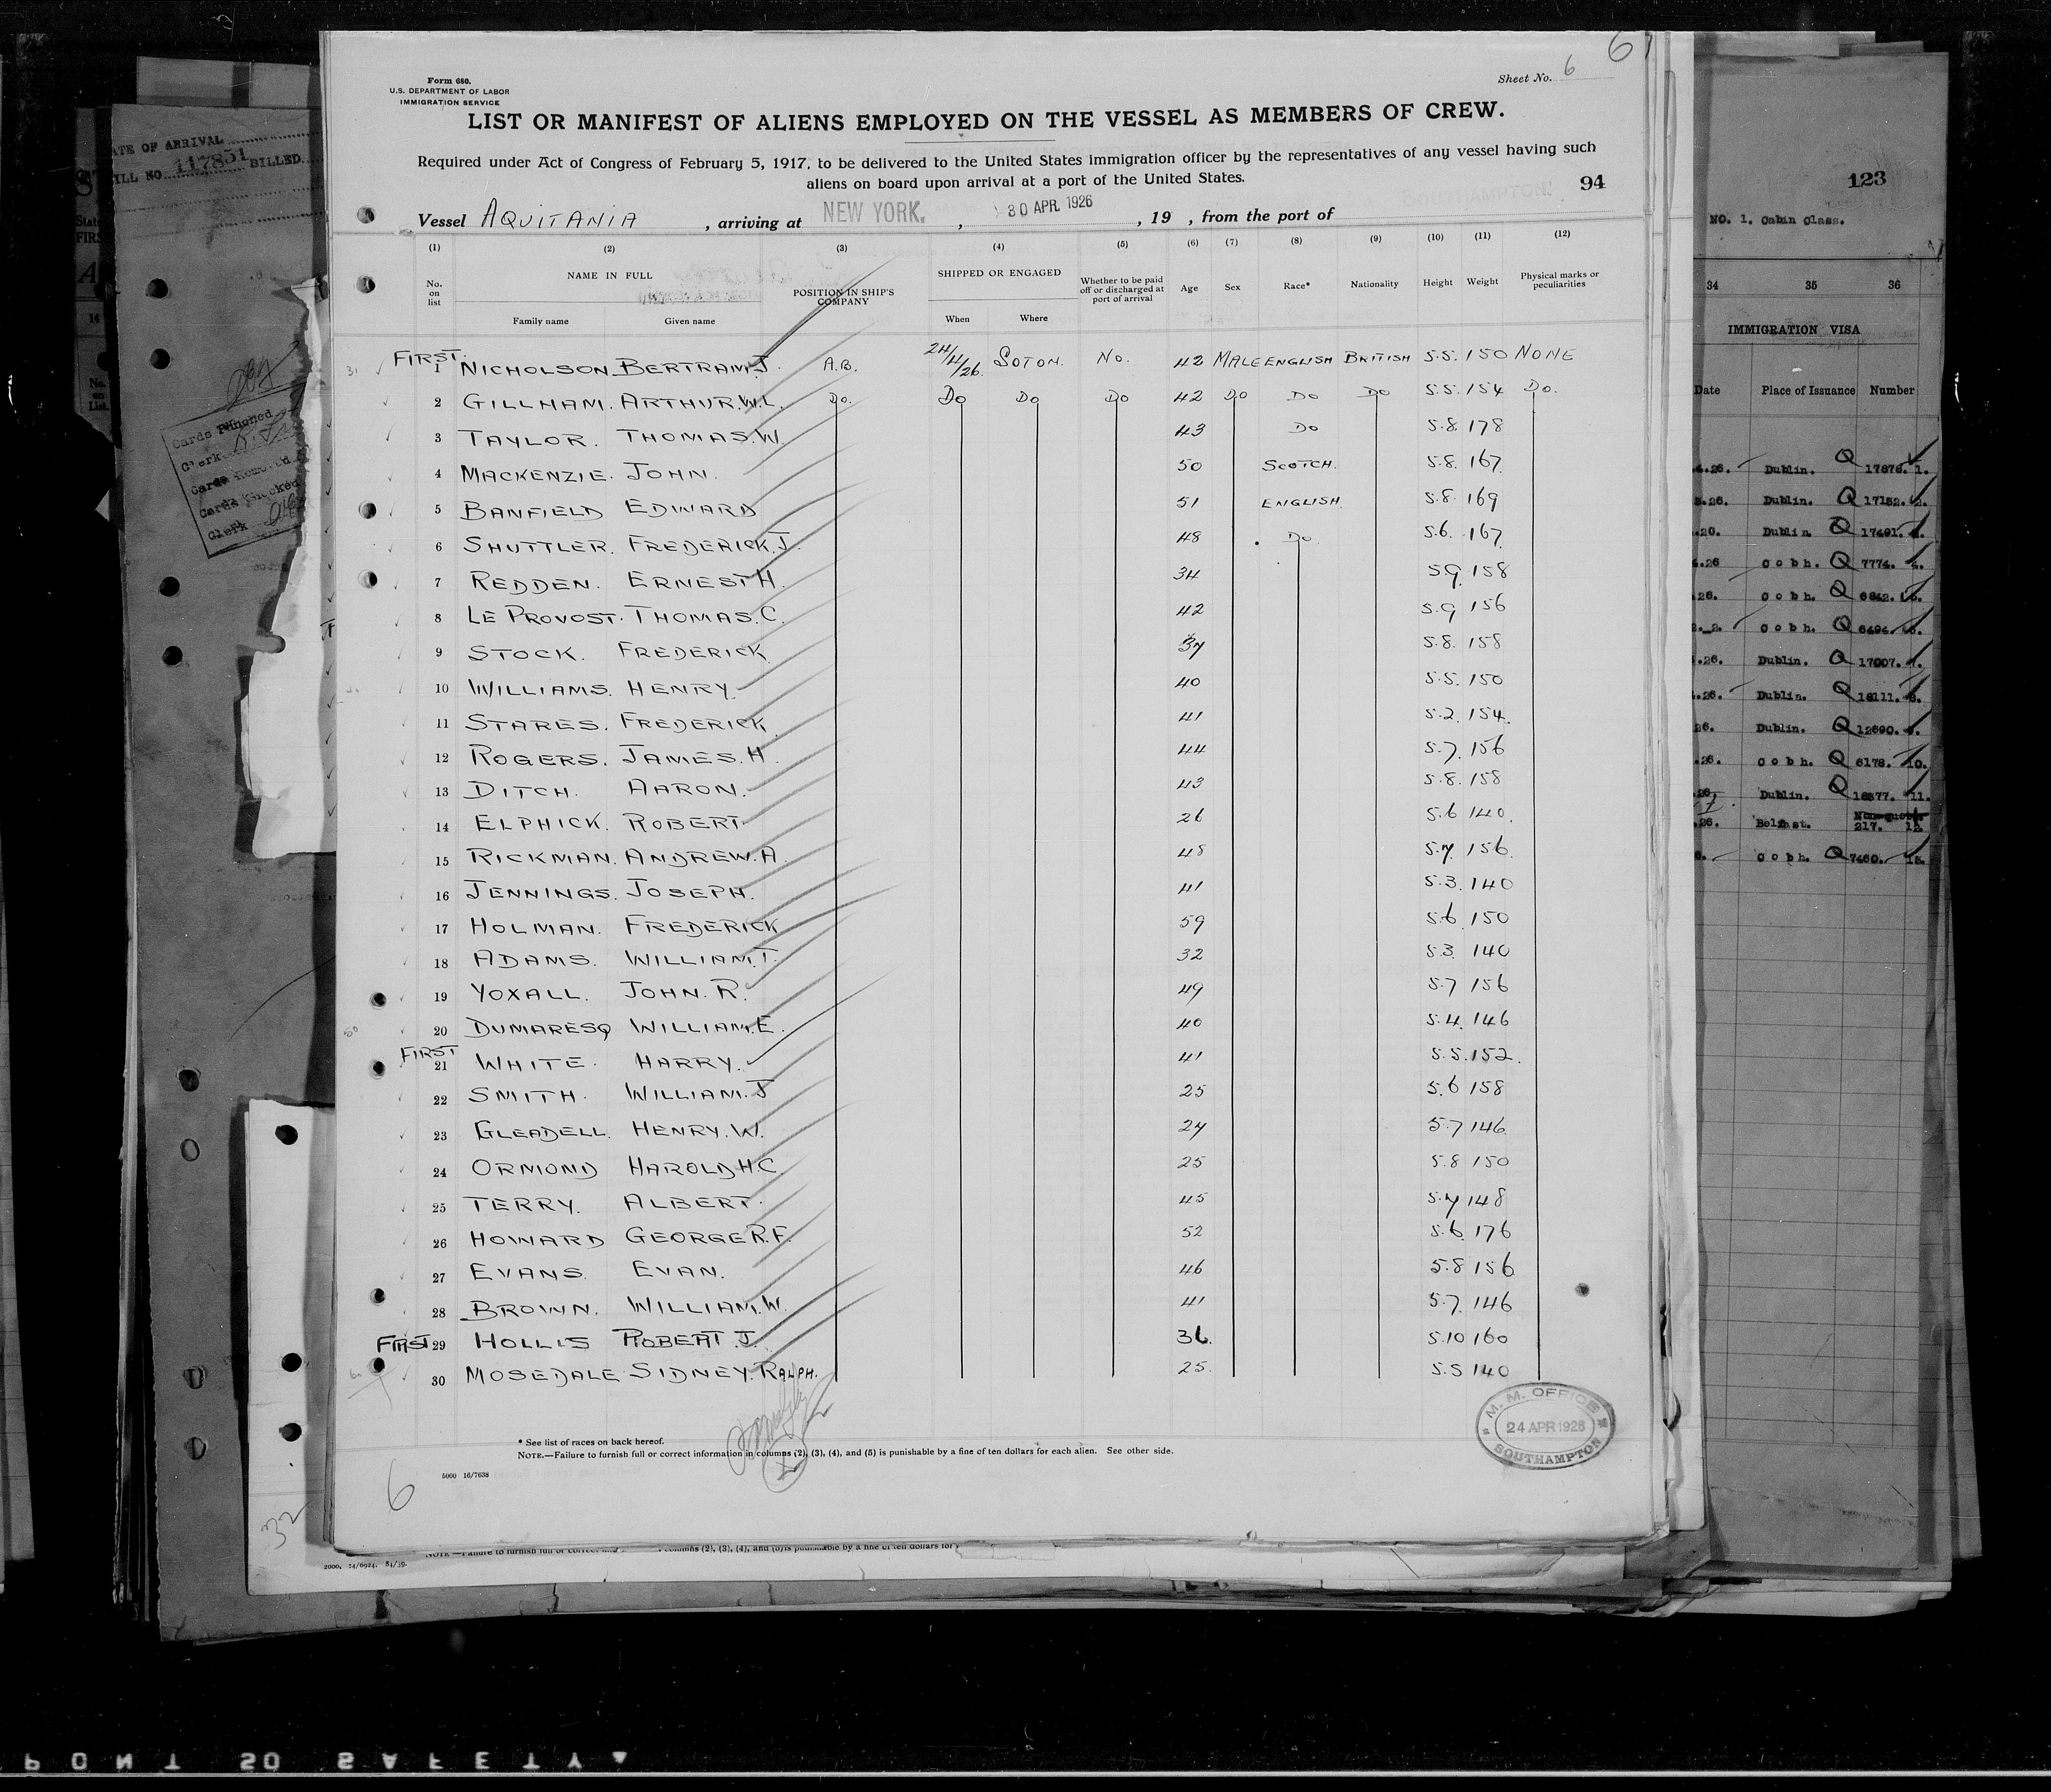 6
Sheet No. 6
Form 680.
U.S. DEPARTMENT OF LABOR
IMMIGRATION SERVICE
LIST OR MANIFEST OF ALIENS EMPLOYED ON THE VESSEL AS MEMBERS OF CREW.
Required under Act of Congress of February 5, 1917, to be delivered to the United States immigration officer by the representatives of any vessel having such
aliens on board upon arrival at a port of the United States.
94
Vessel AQUITANIA, arriving at NEW YORK, 30 APR. 1926, 19 , from the port of SOUTHAMPTON
(1) (2) (3) (4) (5) (6) (7) (8) (9) (10) (11) (12)
No. on list NAME IN FULL Family name Given name POSITION IN SHIP'S COMPANY SHIPPED OR ENGAGED When Where Whether to be paid off or discharged at port of arrival Age Sex Race* Nationality Height Weight Physical marks or peculiarities
FIRST 1 NICHOLSON BERTRAM.J. A.B. 24/4/26. SOTON. NO. 42 MALE ENGLISH BRITISH 5.5. 150 NONE
2 GILLHAM. ARTHUR.W.L. DO. DO DO DO 42 DO DO DO 5.5. 154 DO.
3 TAYLOR. THOMAS.W. 43 DO 5.8. 178
4 MACKENZIE. JOHN. 50 SCOTCH. 5.8. 167.
5 BANFIELD EDWARD 51 ENGLISH 5.8. 169
6 SHUTTLER. FREDERICK.J. 48 DO. 5.6. 167.
7 REDDEN. ERNEST H. 34 5.9. 158
8 LE PROVOST. THOMAS.C. 42 5.9 156
9 STOCK. FREDERICK. 37 5.8. 158
10 WILLIAMS. HENRY. 40 5.5. 150
11 STARES. FREDERICK. 41 5.2. 154.
12 ROGERS. JAMES.H. 44 5.7. 156
13 DITCH. AARON. 43 5.8. 158
14 ELPHICK. ROBERT. 26 5.6 140.
15 RICKMAN. ANDREW.A. 48 5.7. 156.
16 JENNINGS. JOSEPH. 41 5.3. 140
17 HOLMAN. FREDERICK 59 5.6. 150
18 ADAMS. WILLIAM.T. 32 5.3. 140
19 YOXALL. JOHN.R. 49 5.7 156
20 DUMARESQ WILLIAM.E. 40 5.4. 146
FIRST 21 WHITE. HARRY. 41 5.5. 152.
22 SMITH. WILLIAM.J 25 5.6 158
23 GLEADELL. HENRY.W. 27 5.7 146.
24 ORMOND HAROLD H.C. 25 5.8 150
25 TERRY. ALBERT. 45 5.7 148
26 HOWARD GEORGE R.F. 52 5.6. 176
27 EVANS. EVAN. 46 5.8 156
28 BROWN. WILLIAM.W. 41 5.7. 146
FIRST 29 HOLLIS ROBERT.J. 36. 5.10 160
30 MOSEDALE. SIDNEY.RALPH. 25. 5.5 140
M. M. OFFICE
24 APR 1926
SOUTHAMPTON
* See list of races on back hereof.
NOTE.—Failure to furnish full or correct information in columns (2), (3), (4), and (5) is punishable by a fine of ten dollars for each alien. See other side.
5000 16/7638
6
32
2000, 24/6924. 84/39.
DATE OF ARRIVAL
BILL NO 117851 BILLED
Cards Punched
Clerk
Cards Removed
Cards Checked
Clerk
123
NO. 1. Cabin Class.
34 35 36
IMMIGRATION VISA
Date Place of Issuance Number
Dublin. Q 17876. 1.
Dublin. Q 17152. 2.
Dublin. Q 17491. 3.
Cobh. Q 7774. 4.
Cobh. Q 6842. 5.
Cobh. Q 6494. 6.
Dublin. Q 17007. 7.
Dublin. Q 18111. 8.
Dublin. Q 12690. 9.
Cobh. Q 6178. 10.
Dublin. Q 18377. 11.
Belfast. Non-quota 217. 12.
Cobh. Q 7460. 13.
PONT SO SAFETY